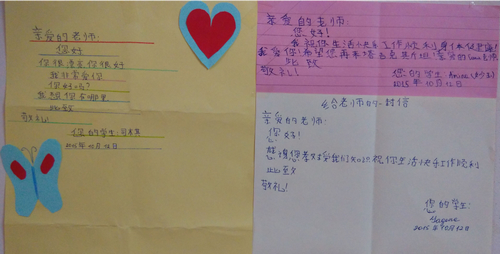 亲爱的老师:
您好!
你很漂亮你很好
我非常爱你
你好吗?
我想你在哪里
此致
敬礼!
您的学生:
2015年10月12日
亲爱的老师:
您好!
我祝你生活快乐工作顺利身体健康!
我爱你!希望您再来塔吉克斯坦!
此致
敬礼!
您的学生
2015年10月12日
给老师的一封信
亲爱的老师:
您好!
您教我们知识祝你生活快乐工作顺利
此致
敬礼!
您的学生:
2015年10月12日